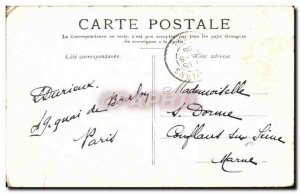 CARTE POSTALE
La Correspondance au recto n'est pas acceptée par tous les pays étrangers
(Se renseigner à la Poste)
Côté correspondance.
Côté adresse.
Darieux.
49 quai de
Paris
Mademoiselle
S. Dorme
Conflans sur Seine
Marne